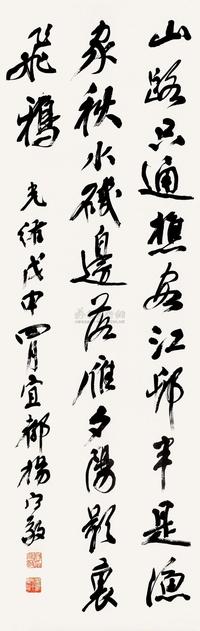 山路只通樵客江邨半是漁
家秋水磯邊落雁夕陽影裏
飛鴉
光緒戊申四月宜都楊守敬